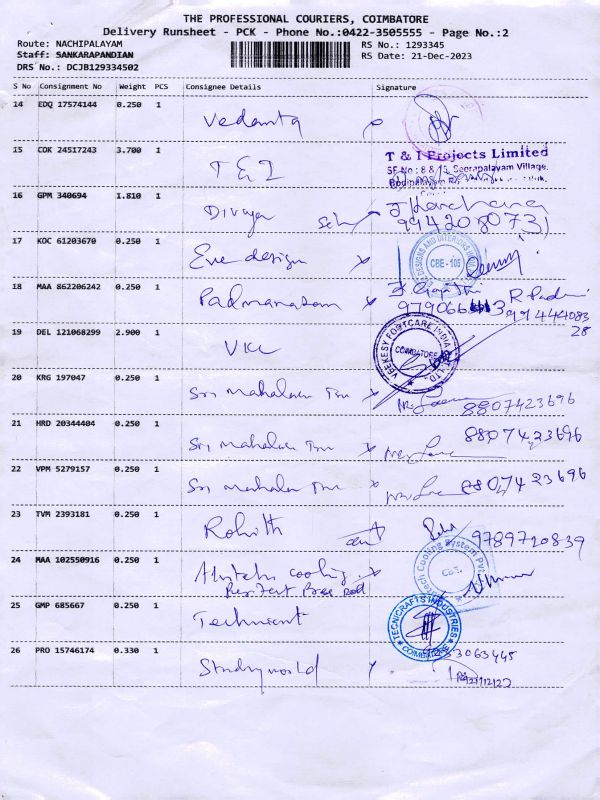 THE PROFESSIONAL COURIERS, COIMBATORE
Delivery Runsheet - PCK - Phone No.:0422-3505555 - Page No.:2
Route: NACHIPALAYAM RS No.: 1293345
Staff: SANKARAPANDIAN RS Date: 21-Dec-2023
DRS No.: DCJB129334502
S No Consignment No Weight PCS Consignee Details Signature
14 EDQ 17574144 0.250 1 Vedanta
15 COK 24517243 3.700 1 T & I T & I Projects Limited
SF No : 8 & 15, Seerapalayam Village,
16 GPM 340694 1.810 1 Divaya
9942080731
17 KOC 61203670 0.250 1 Eve design CBE - 105
18 MAA 862206242 0.250 1 Padmanabam
19 DEL 121068299 2.900 1 VKC VEEKESY FOOTCARE INDIA COIMBATORE
20 KRG 197047 0.250 1 Sri Mahalaxmi 8807423696
21 HRD 20344404 0.250 1 Sri Mahalaxmi 8807423696
22 VPM 5279157 0.250 1 Sri Mahalaxmi 8807423696
23 TVM 2393181 0.250 1 Rohith 9789710839
24 MAA 102550916 0.250 1 cooling Cooling System Pvt.
25 GMP 685667 0.250 1 TECNICRAFTS INDUSTRIES COIMBATORE
26 PRO 15746174 0.330 1 Study world